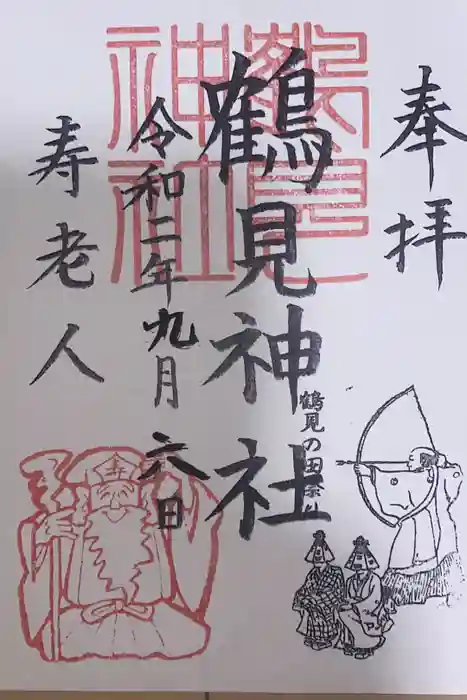 奉拝
鶴見神社
令和二年九月六日
寿老人
鶴見
神社
鶴見の田祭り
寿